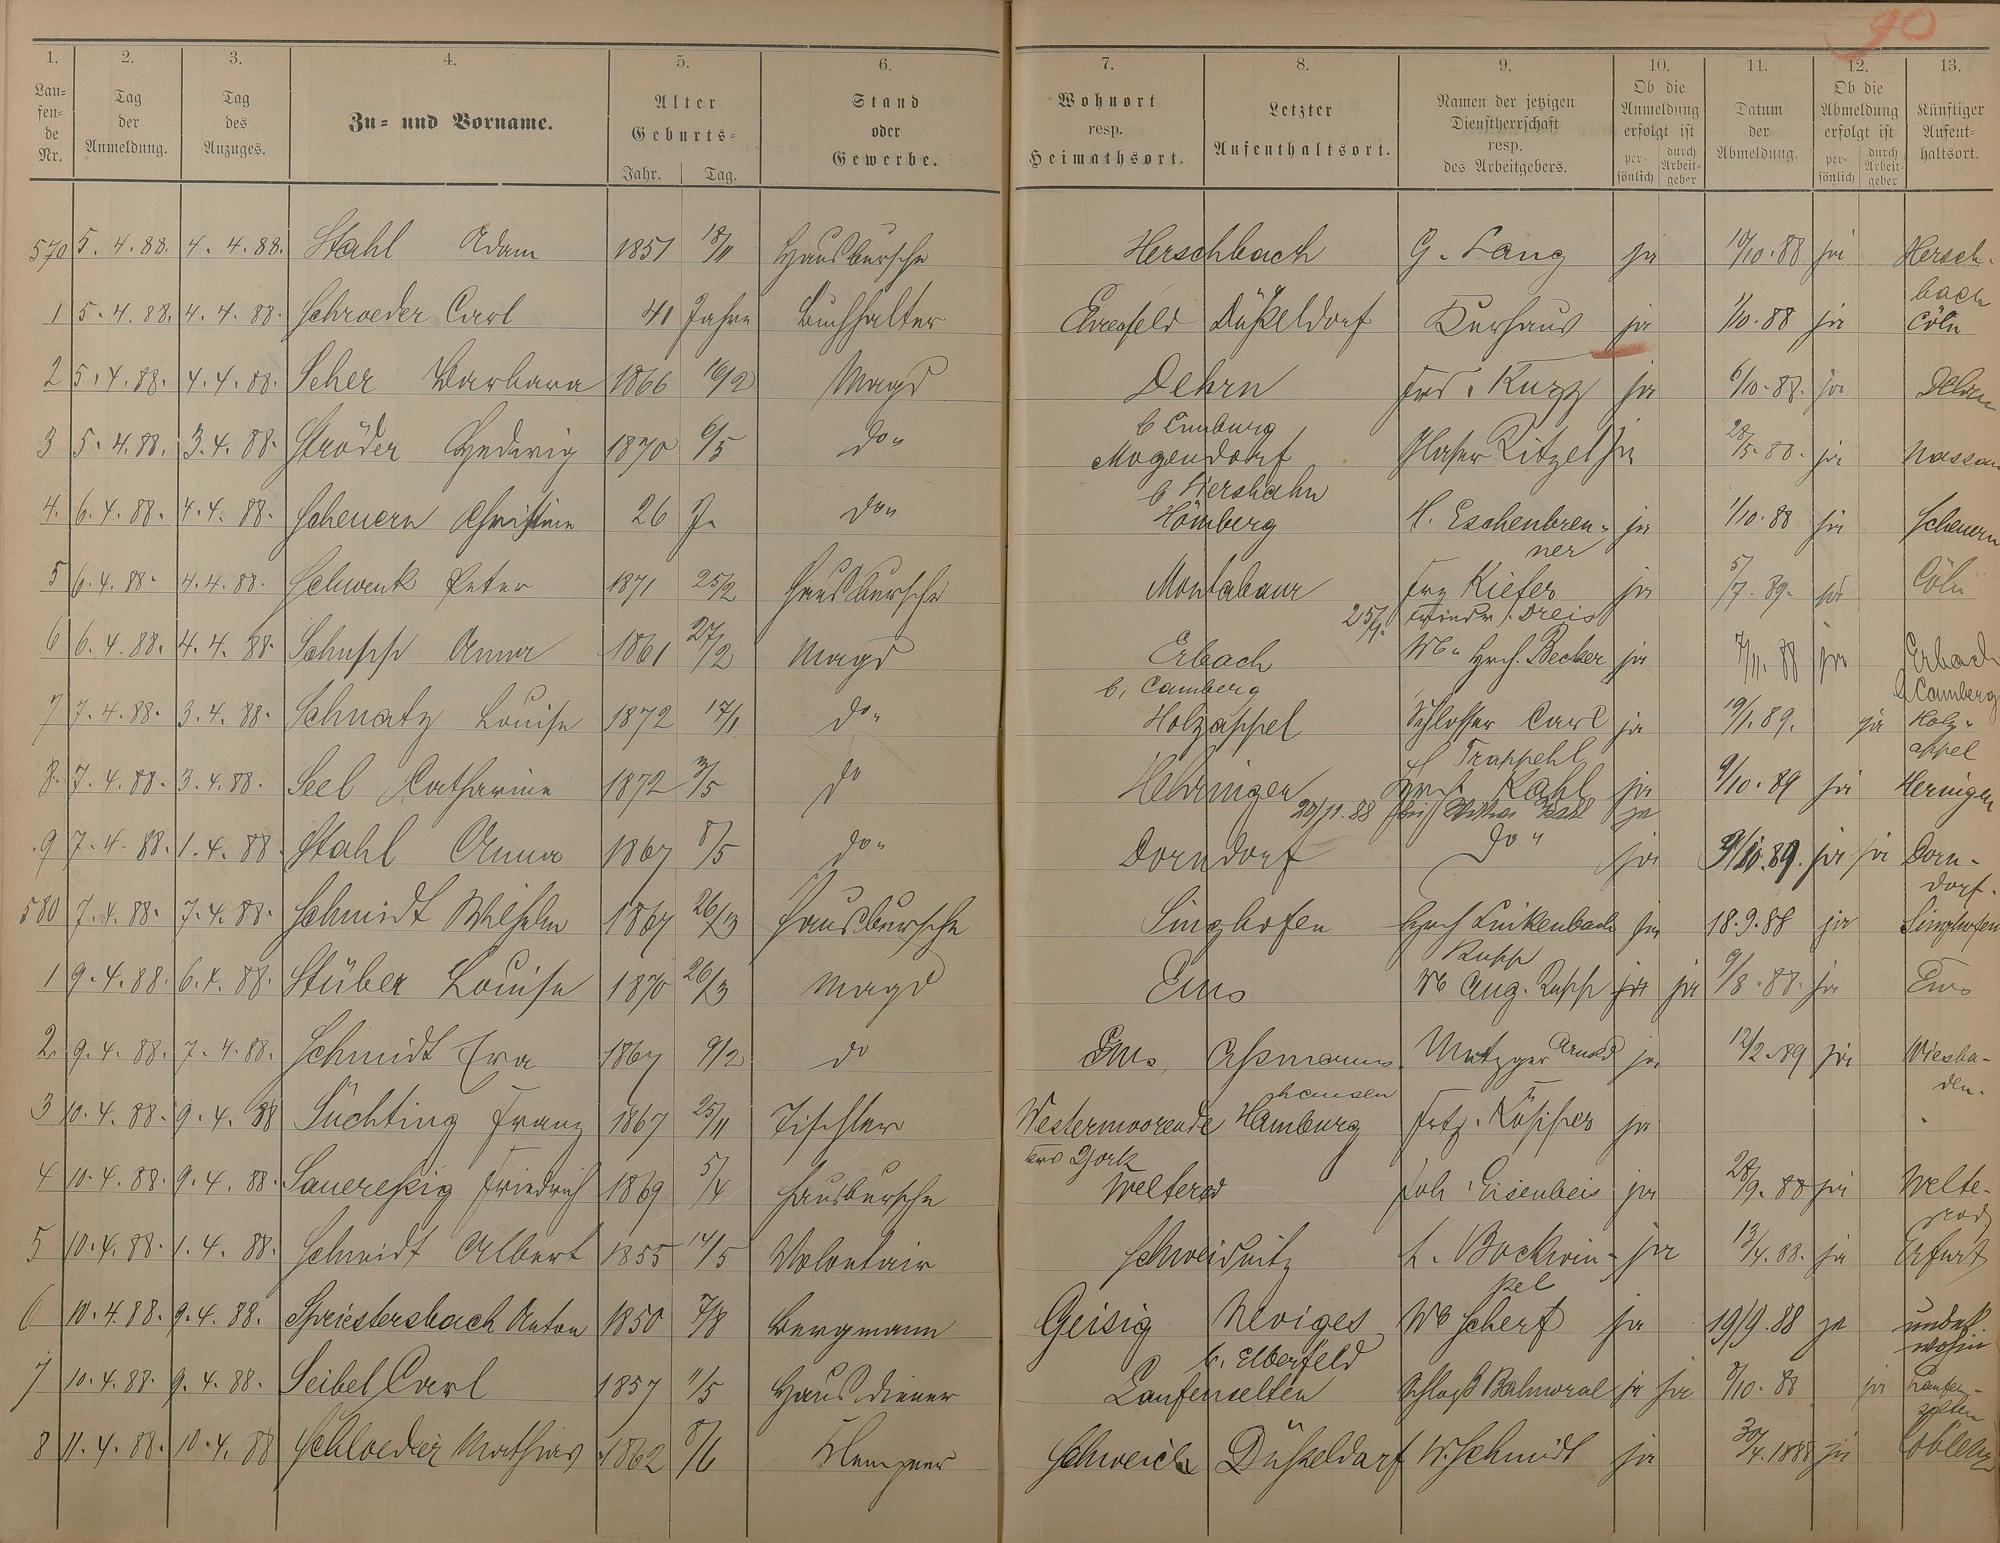 90
1. 2. 3. 4. 5. 6. 7. 8. 9. 10. 11. 12. 13.
Laufende Nr. Tag der Anmeldung. Tag des Anzuges. Zu- und Vorname. Alter Geburts- Jahr. Tag. Stand oder Gewerbe. Wohnort resp. Heimathsort. Letzter Aufenthaltsort. Namen der jetzigen Dienstherrschaft resp. des Arbeitgebers. Ob die Anmeldung erfolgt ist persönlich durch Arbeitgeber Datum der Abmeldung. Ob die Abmeldung erfolgt ist persönlich durch Arbeitgeber Künftiger Aufenthaltsort.
570 5.4.88. 4.4.88. Stahl Adam 1851 18/11 Hausbursche Herschbach G. Lang ja 10/10.88 ja Herschbach
1 5.4.88. 4.4.88. Schroeder Carl 41 Jahre Buchhalter Ehrenfeld Düßeldorf Kurhaus ja 1/10.88 ja Cöln
2 5.4.88. 4.4.88. Seher Barbara 1866 16/2 Magd Dehrn b Limburg Frd. Kurz ja 6/10.88. ja Dehrn
3 5.4.88. 3.4.88. Ströder Hedwig 1870 6/5 do. Mogendorf b Siershahn Glaser Ritzel ja 28/5.88. ja Nassau
4. 6.4.88. 4.4.88. Scheuern Christine 26 J. do. Hömberg H. Eschenbrenner ja 1/10.88 ja Scheuern
5 6.4.88. 4.4.88. Schwenk Peter 1871 25/2 Hausbursche Montabaur Frz Kiefer ja 5/7.89. ja Cöln
25/9. Friedr. Dreis
6 6.4.88. 4.4.88. Schupp Anna 1861 27/2 Magd Erbach b. Camberg Wb. Hrch. Becker ja 7/11.88 ja Erbach b Camberg
7 7.4.88. 3.4.88. Schnatz Louise 1872 17/1 do. Holzappel Schlosser Carl Trappehl ja 19/1.89. ja Holzappel
8. 7.4.88. 3.4.88. Seel Catharine 1872 3/5 do Hehringen Kahl ja 9/10.89 ja Heringen
20/11.88 Kahl ja
9 7.4.88. 1.4.88. Stahl Anna 1867 8/5 do. Dorndorf do " ja 9/10.89. ja ja Dorndorf.
580 7.4.88. 7.4.88. Schmidt Wilhelm 1867 26/3 Hausbursche Singhofen Hrch Linkenbach ja 18.9.88 ja Singhofen
1 9.4.88. 6.4.88. Stüber Louise 1870 26/3 Magd Ems Rupp Wb Aug. Rupp ja ja 9/8.88. ja Ems
2. 9.4.88. 7.4.88. Schmidt Eva 1867 9/2 do Ems Aßmannshausen Metzger Arnold ja 12/2.89 ja Wiesbaden.
3 10.4.88. 9.4.88 Süchting Franz 1867 25/11 Tischler Westermoorende Krs York Hamburg Frtz. Küpper ja
4 10.4.88. 9.4.88. Saueressig Friedrich 1869 5/4 Hausbursche Welterod Joh. Eisenbeis ja 28/9.88 ja Welterod
5 10.4.88. 1.4.88. Schmidt Albert 1855 14/5 Volontair Schweidnitz L. Bockwinkel ja 13/4.88. ja Erfurt
6 10.4.88. 9.4.88. Spriestersbach Anton 1850 7/8 Bergmann Geisig Neviges b. Elberfeld Wb Scherf ja 19/9.88 ja unbek. wohin
7 10.4.88. 9.4.88. Seibel Carl 1857 11/5 Hausdiener Laufenselten Schloß Balmoral ja ja 8/10.88 ja Laufenselten
8 11.4.88. 10.4.88 Schloeder Mathias 1862 8/6 Klempner Schweich Düßeldorf W. Schmidt ja 30/4.1888 ja Coblenz